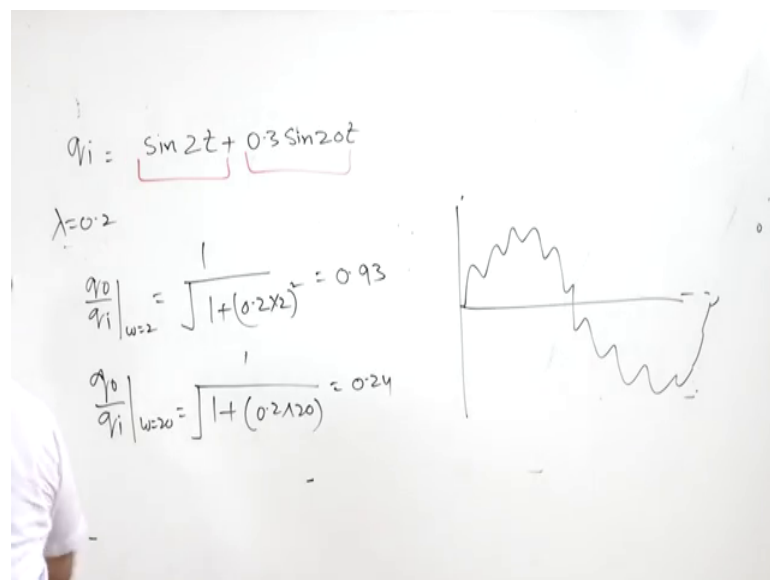 qi = sin2t + 0.3 sin20t
λ=0.2
qo/qi|ω=2 = 1/√(1+(0.2×2)²) = 0.93
qo/qi|ω=20 = 1/√(1+(0.2×20)) = 0.24